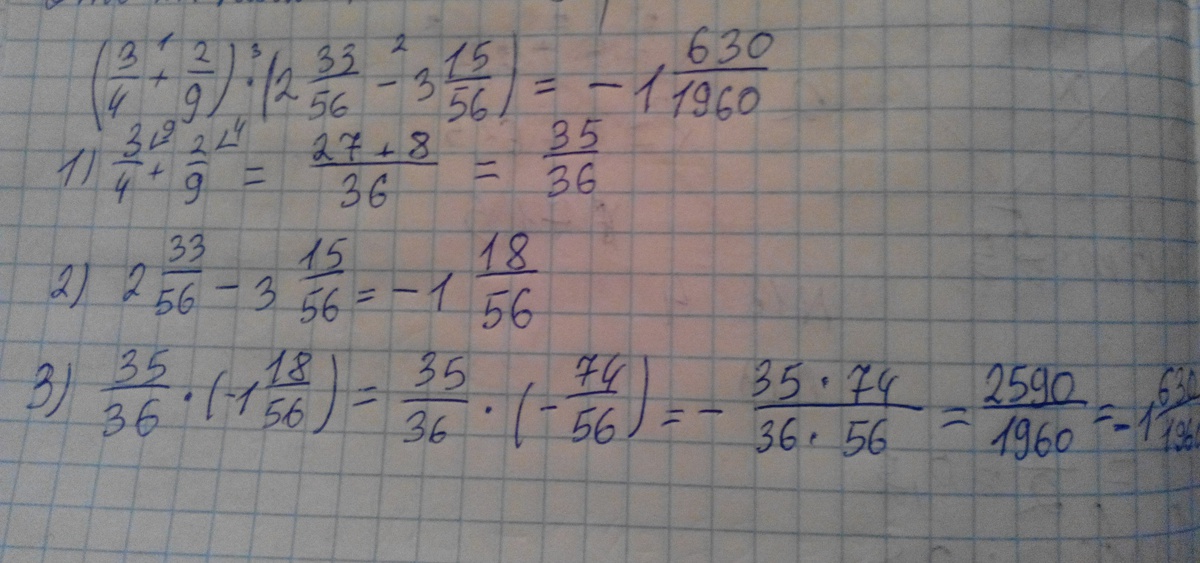 (3/4 + 2/9)·(2 33/56 - 3 15/56) = - 1 630/1960
1) 3/4 + 2/9 = 27+8/36 = 35/36
2) 2 33/56 - 3 15/56 = - 1 18/56
3) 35/36 · (-1 18/56) = 35/36 · (- 74/56) = - 35·74/36·56 = 2590/1960 = -1 630/1960